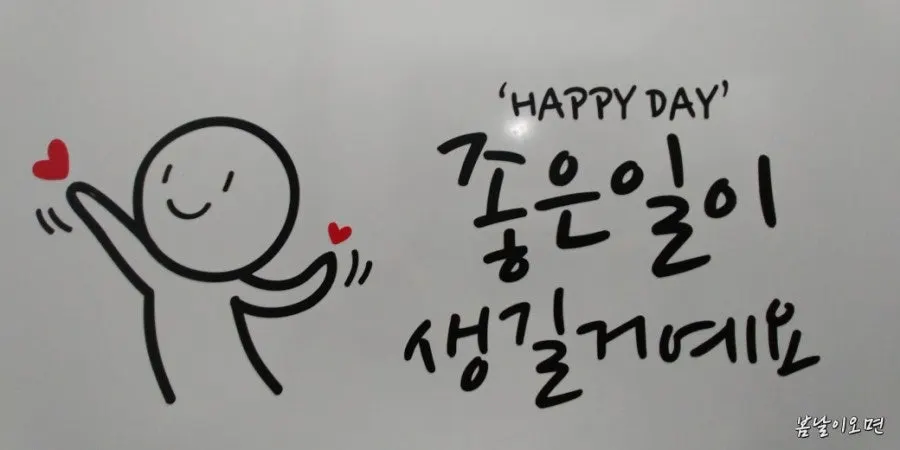 'HAPPY DAY'
좋은일이
생길거예요
봄날이오면